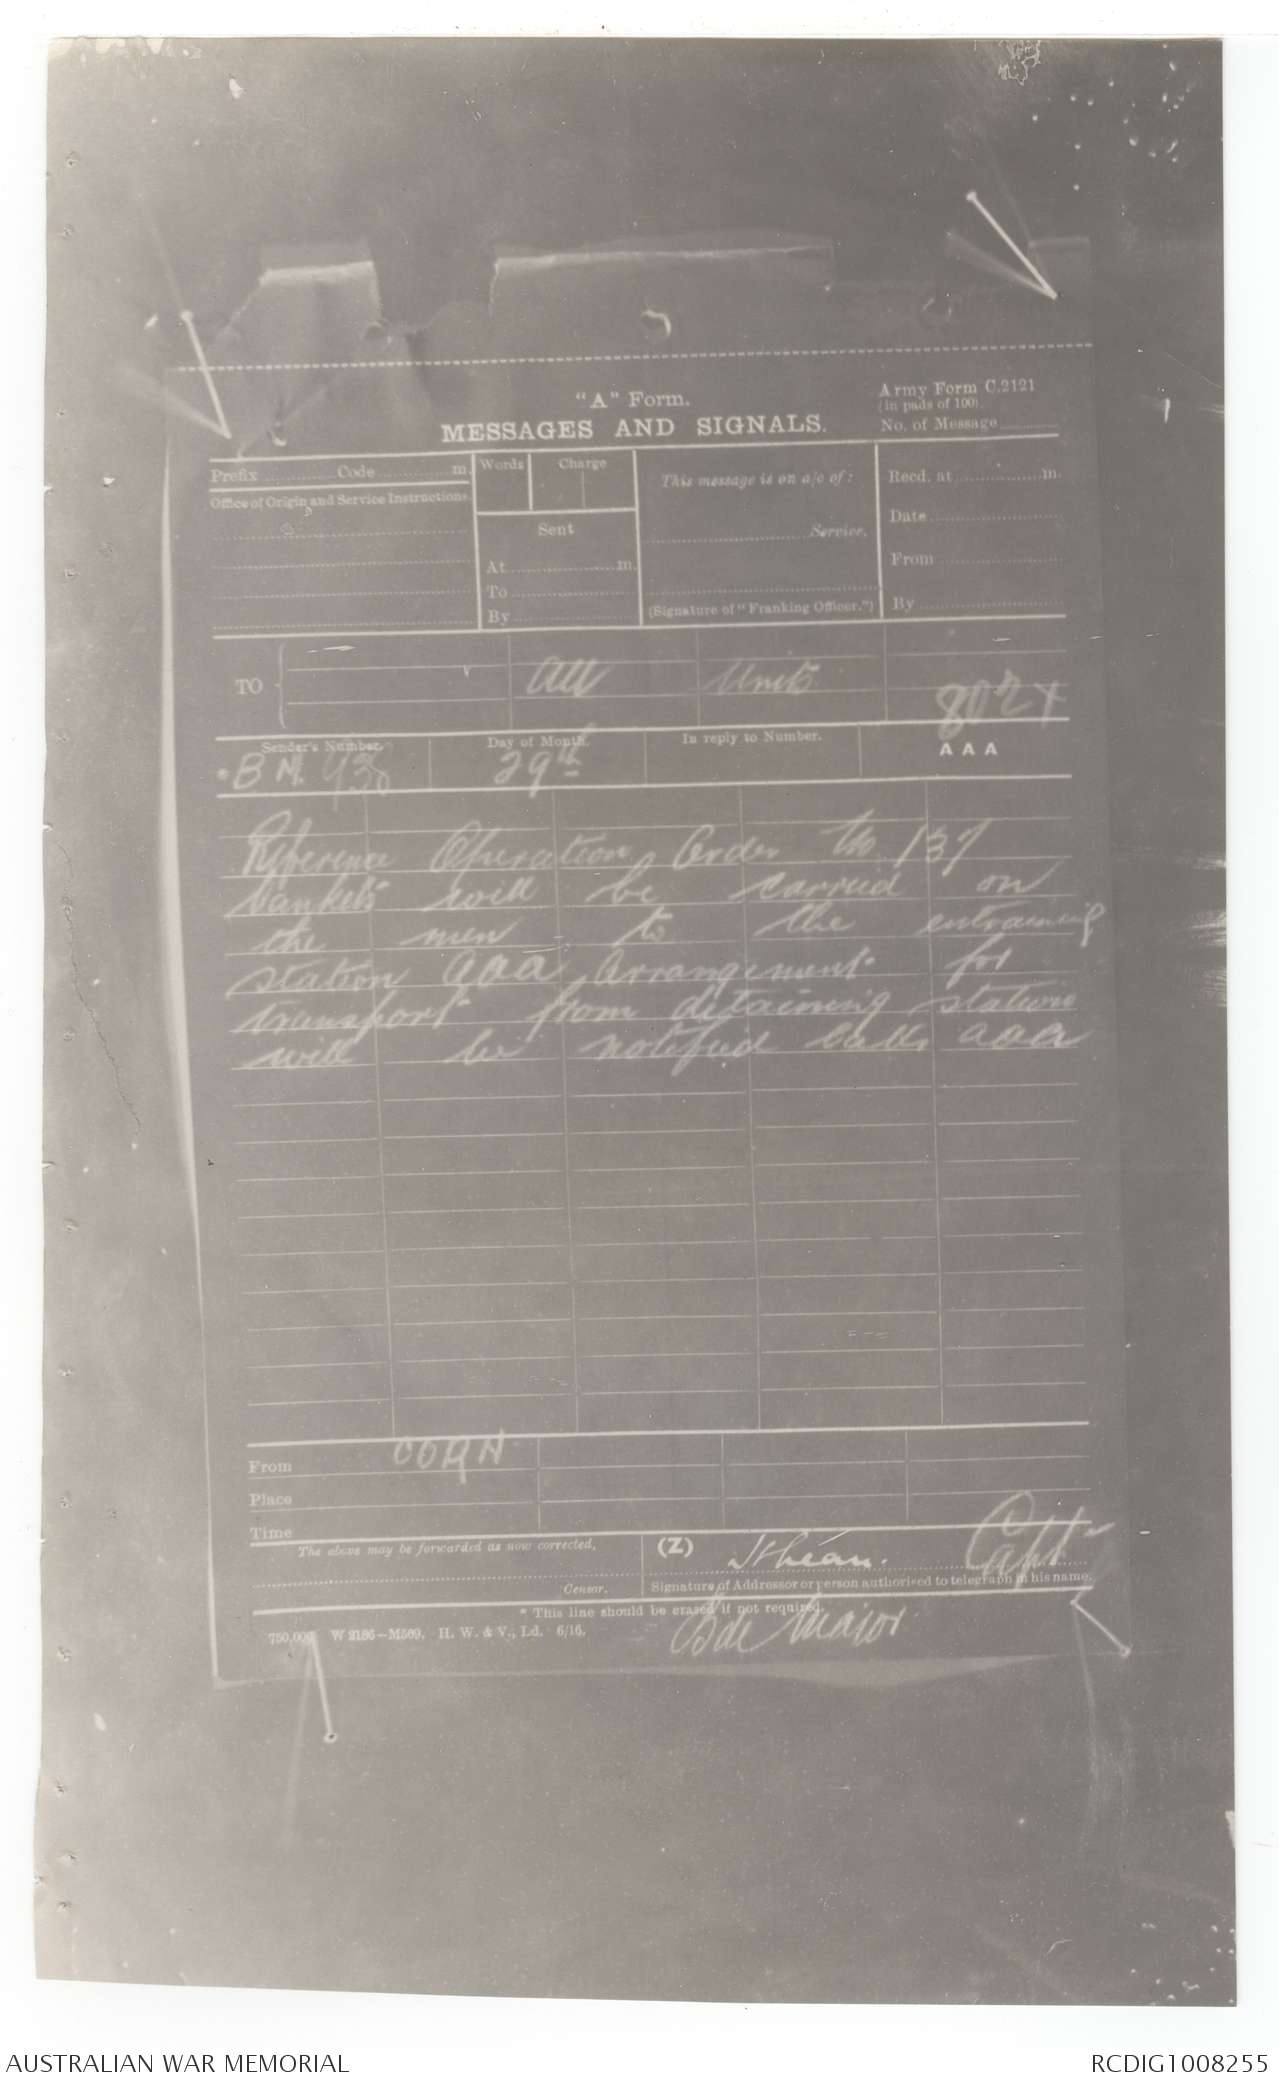 "A" Form.
MESSAGES AND SIGNALS.
Army Form C.2121
(in pads of 100).
No. of Message
Prefix Code m.
Office of Origin and Service Instructions.
Words Charge
Sent
At m.
To
By
This message is on a/c of:
Service.
(Signature of "Franking Officer.")
Recd. at m.
Date
From
By
TO
All Units
8024
Sender's Number. Day of Month. In reply to Number.
* B M. 938 29th AAA
Reference Operation Order No. 137
bankets will be carried on
the men to the entraining
station aaa Arrangement for
transport from detaining stations
will be notified later aaa
From CORN
Place
Time
The above may be forwarded as now corrected.
(Z) Capt
Censor.
Signature of Addressor or person authorised to telegraph in his name.
* This line should be erased if not required.
750,000 W 2186—M509. H. W. & V., Ld. 6/16.
Bde Major
AUSTRALIAN WAR MEMORIAL
RCDIG1008255